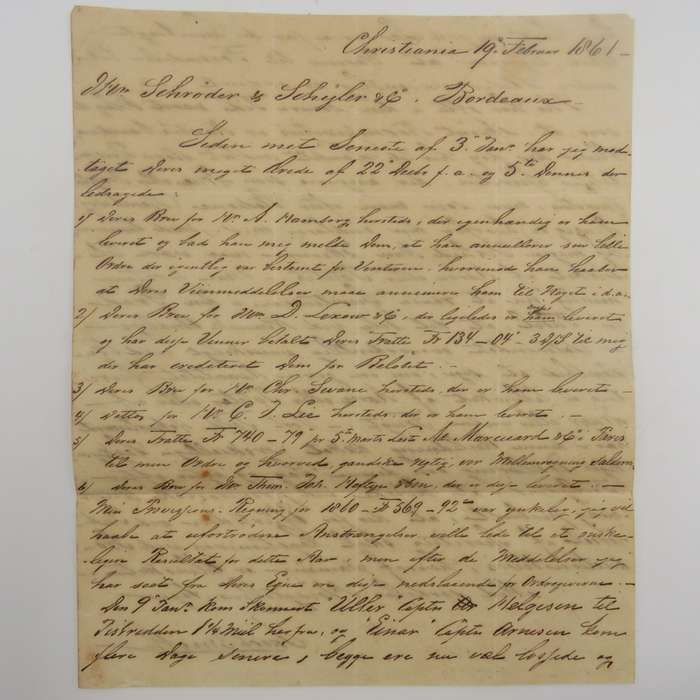 Christiania 19 Februar 1861 —
Schröder & Schÿler & Co. Bordeaux —
Siden mit Seneste af 3 Janr. har jeg mod-
taget Deres meget ærede af 22 Decb f. a. og 5te Dennes der
ledsagede:
1/ Deres Brev for Hr A. Hamborg hersteds, der egenhændig er ham
leveret og bad han mig melde Dem, at han annullerer sin lille
Ordre der egentlig var bestemt for Vinteren, hvorimod han haaber
at Deres Viinmeddelelser maae animere ham til Noget i d. a.
2/ Deres Brev for Hrr D. Lexow & Co, der ligeledes er leveret
og har disse Venner betalt Deres Tratte Fr 134 — 04 til mig
der har crediteret Dem for Beløbet. —
3/ Deres Brev for Hr Chr. Svane hersteds, der er ham leveret —
4/ Dettos for Hr C. J. Lee hersteds, der er ham leveret. —
5/ Deres Tratte Fr 740 — 79 pr 5te Marts Ad. Marcuard & Co i Paris
til min Ordre og hvorved, ganske rigtig, vor Mellemregning
6/ Deres Brev for Thom. Joh. Heftye & Søn, der er disse leveret. —
Min Provisions Regning for 1860 — Fr 569 — 92 var ynkelig, jeg vil
haabe at ufortrødne Anstrængelser ville lede til et ønske-
ligere Resultat for dette Aar, men efter de Meddelelser jeg
har seet fra Deres Egne ere disse nedslaaende for Ordregiverne. —
Den 9 Janr. kom Skonnert "Uller" Captn Helgesen til
1¼ Miil herfra, og "Einar" Captn Arnesen kom
flere Dage senere, begge ere nu vel lossede og